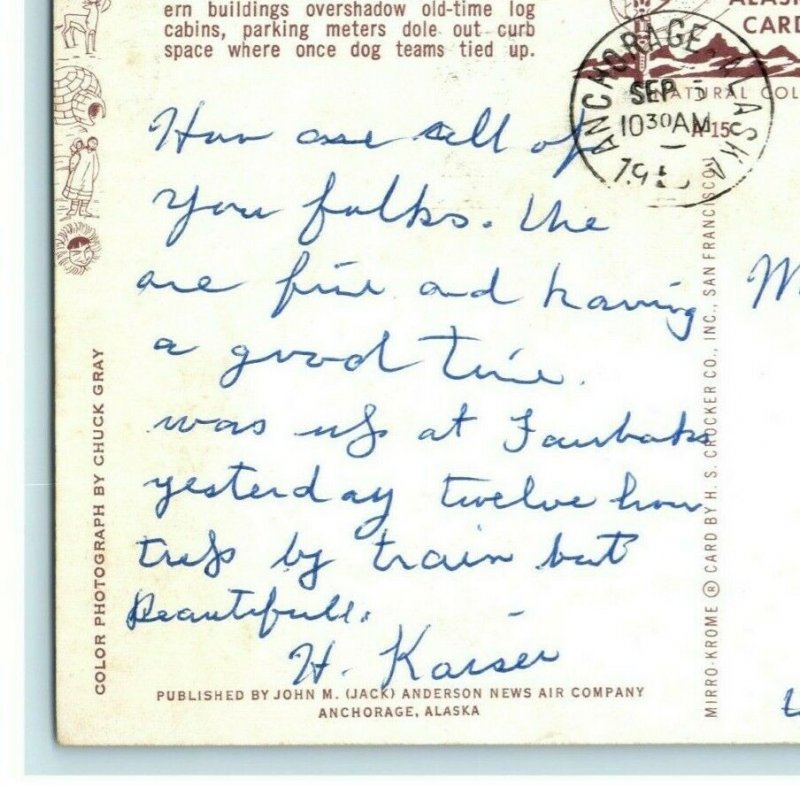 ern buildings overshadow old-time log
cabins, parking meters dole out curb
space where once dog teams tied up.
ALAS
CARD
NATURAL COL
A-15
ANCHORAGE, ALASKA
SEP
10 30 AM
19
How are all of
you folks. We
are fine and having
a good time.
was up at Fairbaks
yesterday twelve hour
trip by train but
Beautifull.
H. Kaiser
PUBLISHED BY JOHN M. (JACK) ANDERSON NEWS AIR COMPANY
ANCHORAGE, ALASKA
COLOR PHOTOGRAPH BY CHUCK GRAY
MIRRO-KROME ® CARD BY H. S. CROCKER CO., INC., SAN FRANCISCO
M